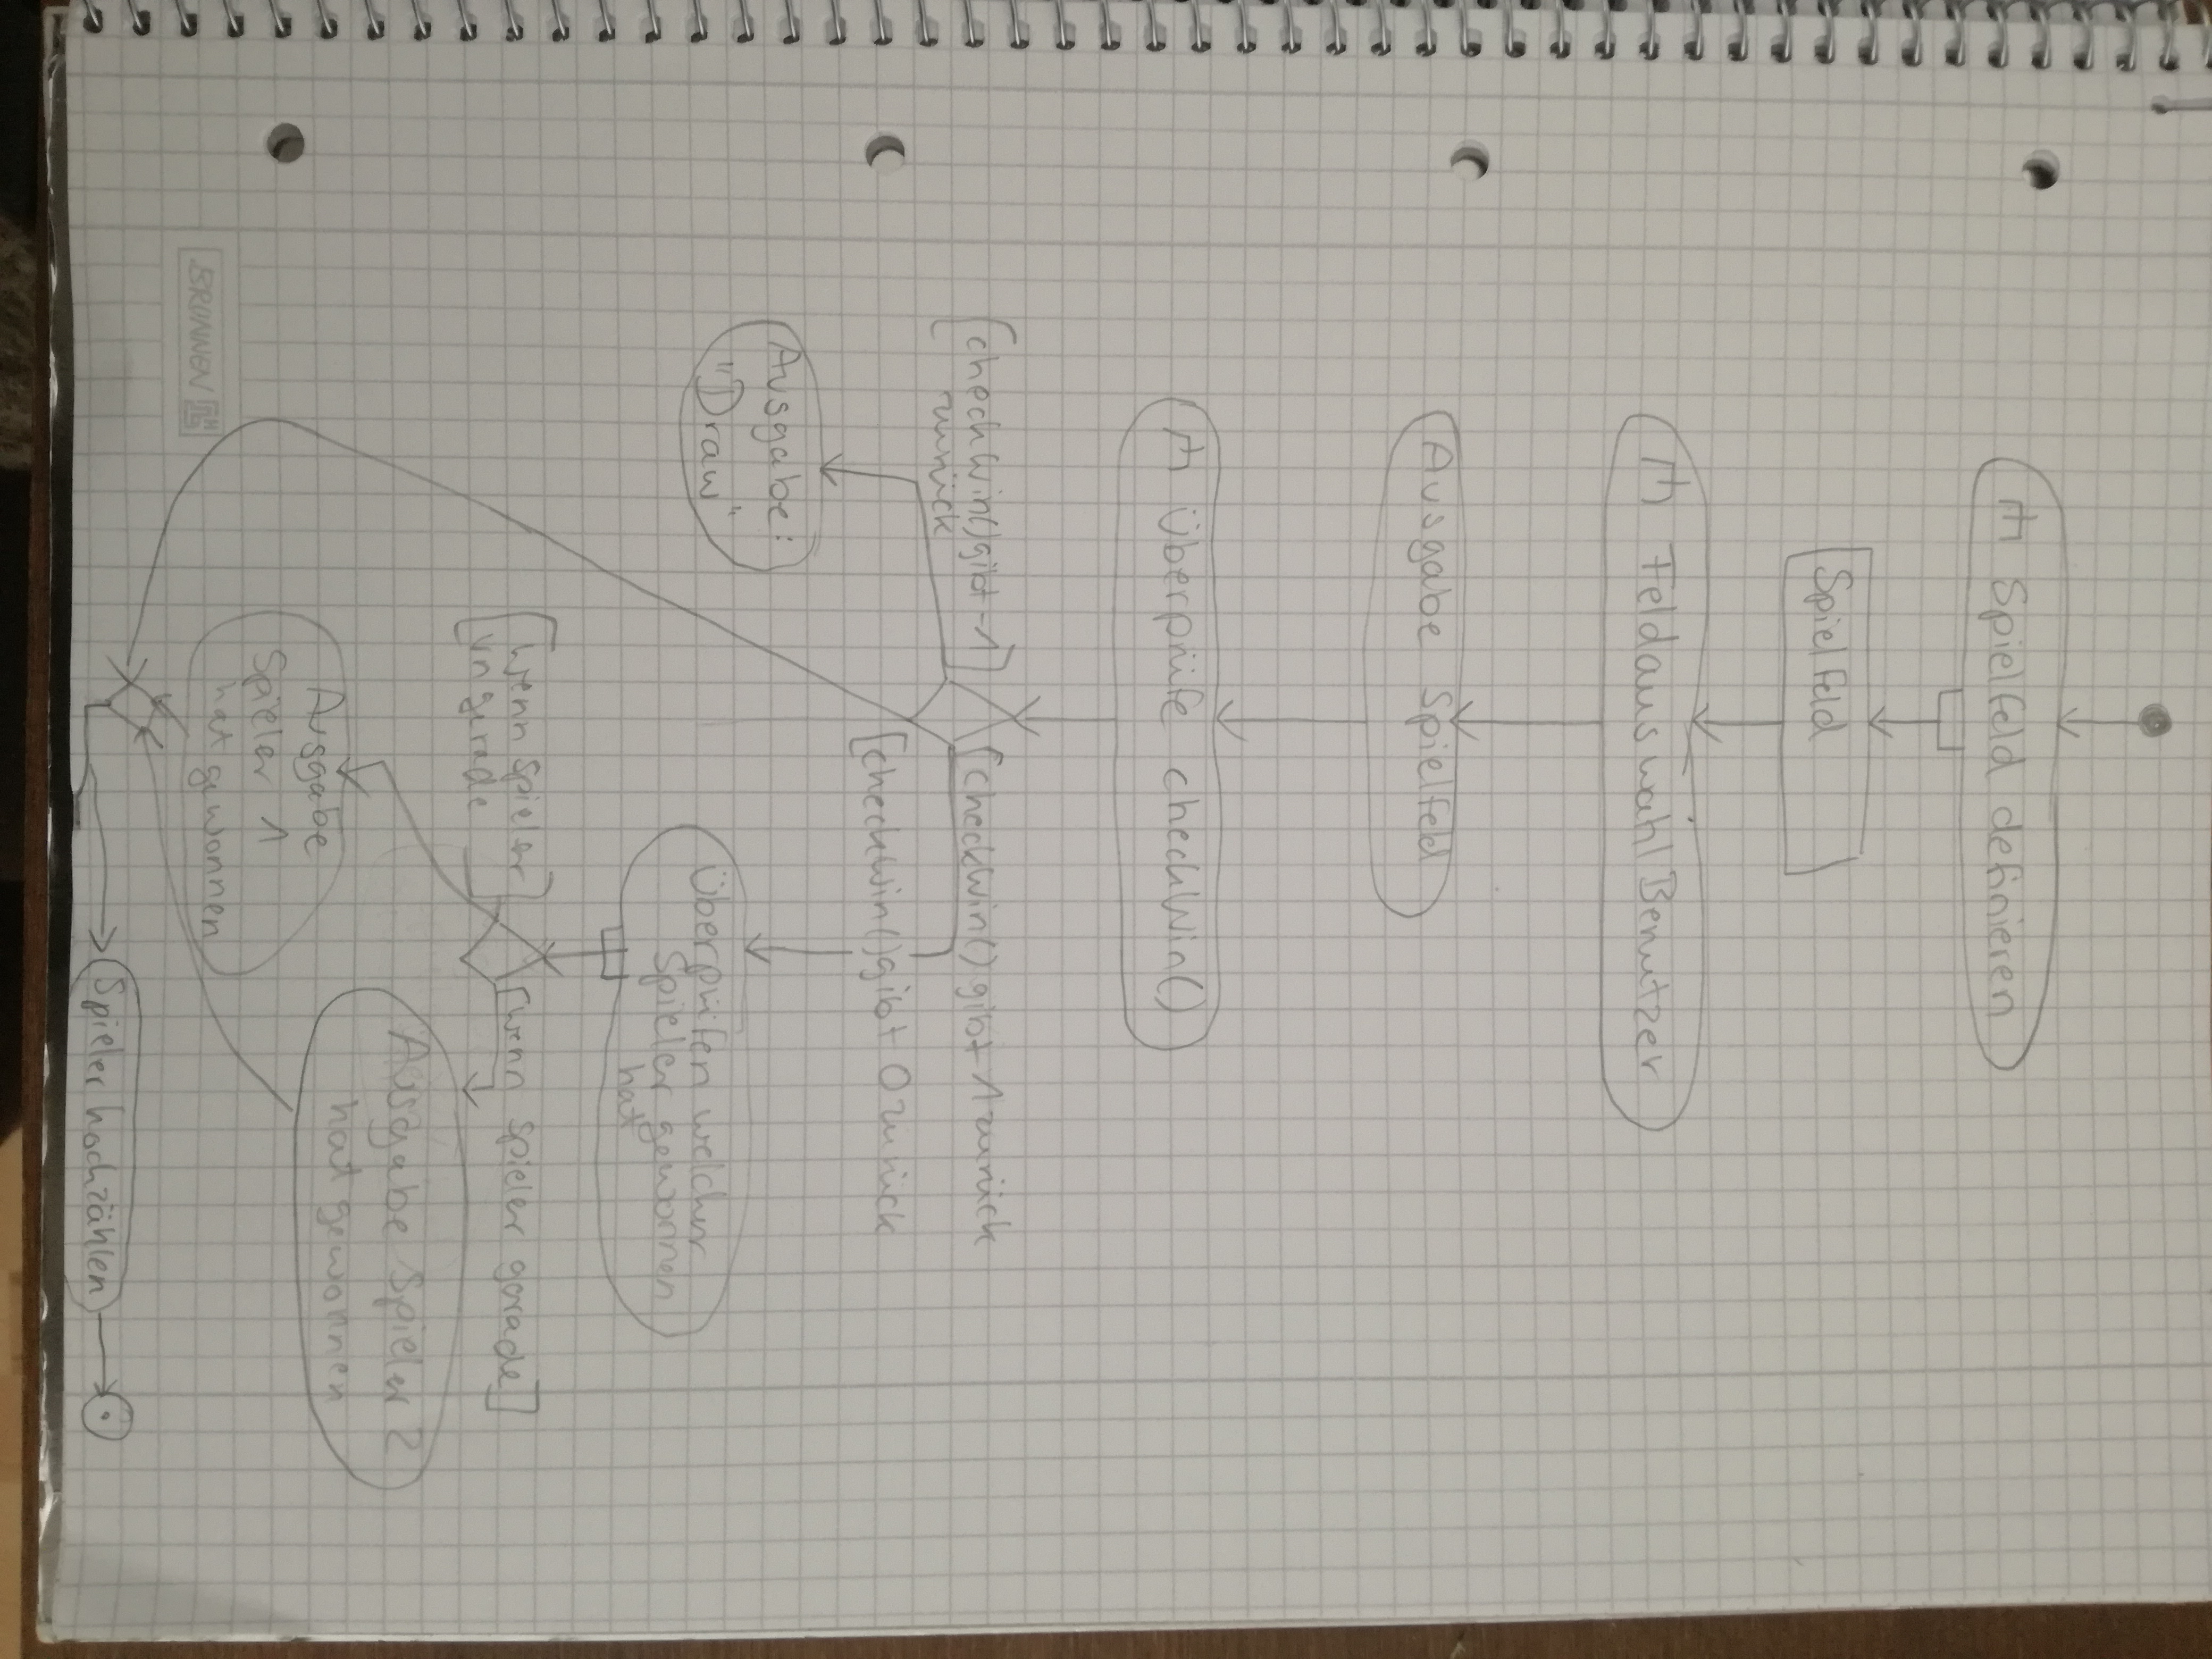 Spielfeld definieren
Spielfeld
Feldauswahl Benutzer
Ausgabe Spielfeld
Überprüfe checkWin()
[checkWin() gibt -1]
zurück
[checkWin() gibt 1 zurück
[checkWin() gibt 0 zurück
Ausgabe:
"Draw"
Überprüfen welcher
Spieler gewonnen
hat
[wenn Spieler]
ungerade
[wenn Spieler gerade]
Ausgabe Spieler 2
hat gewonnen
Ausgabe
Spieler 1
hat gewonnen
BRUNNEN
Spieler hochzählen